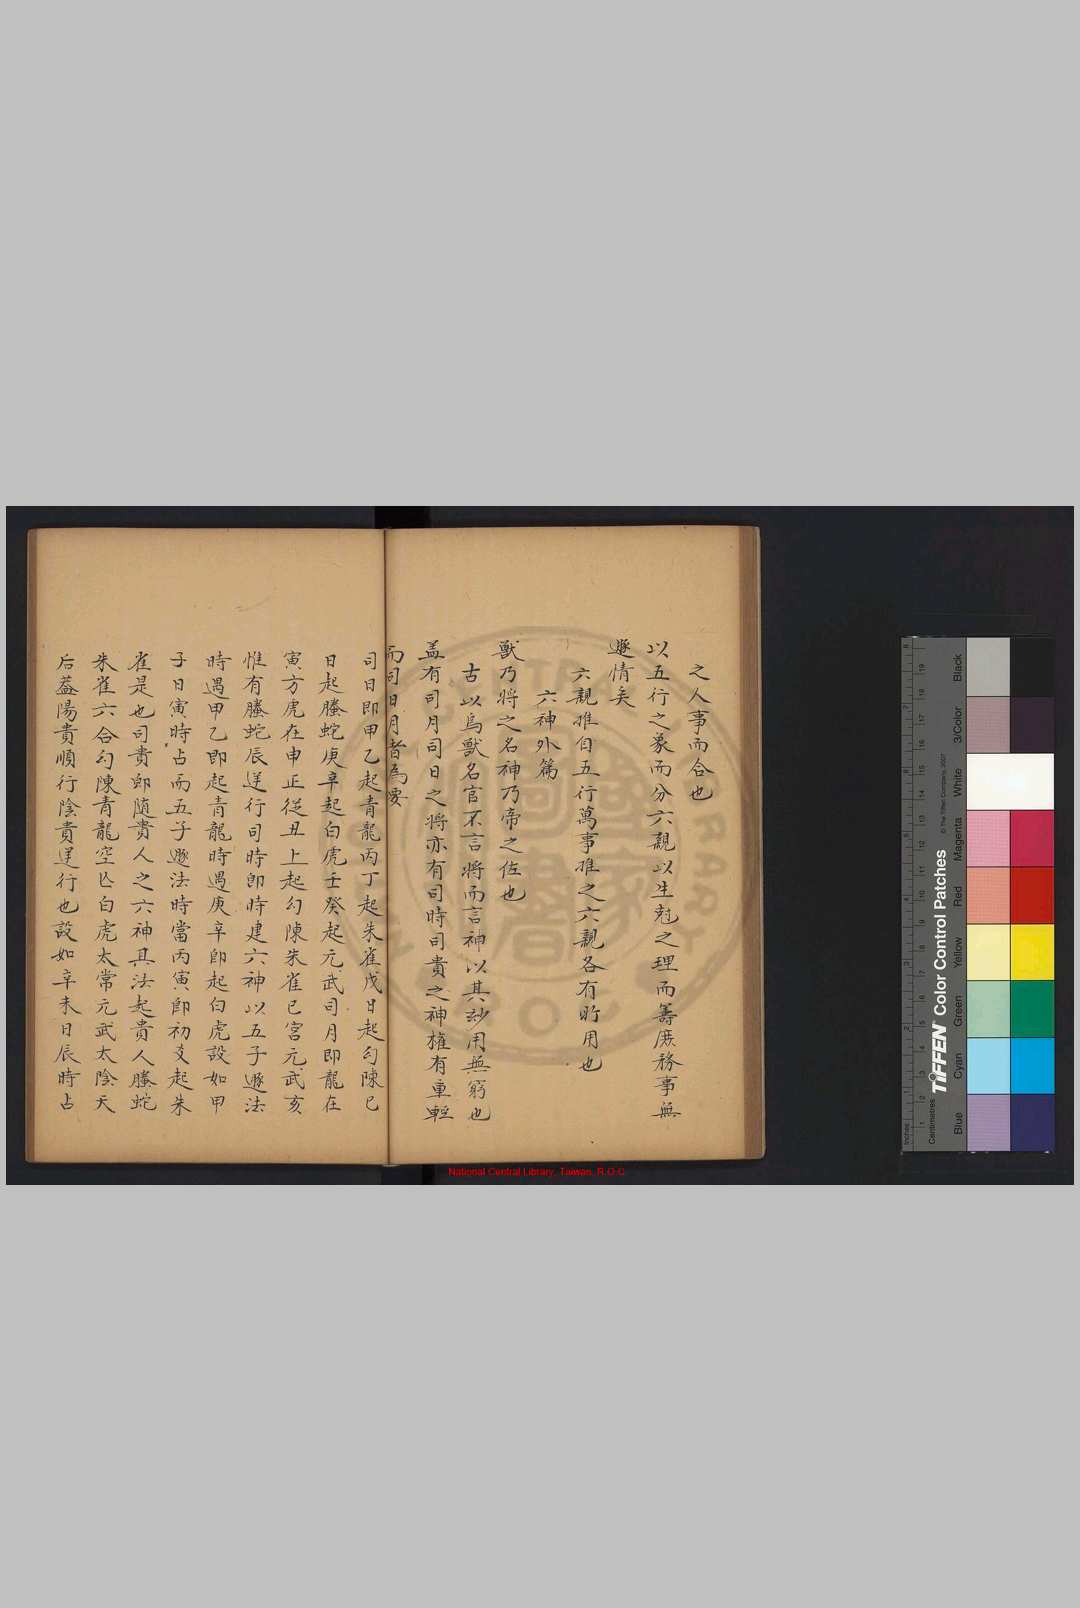 之人事而合也
以五行之象而分六親以生尅之理而籌庶務事無
遯情矣
六親推自五行萬事推之六親各有所用也
六神外篇
獸乃將之名神乃帝之佐也
古以鳥獸名官不言將而言神以其玅用無窮也
盖有司月司日之將亦有司時司貴之神權有重輕
而司日月者為要
司日即甲乙起青龍丙丁起朱雀戊日起勾陳己
日起螣蛇庚辛起白虎壬癸起元武司月即龍在
寅方虎在申正從丑上起勾陳朱雀巳宮元武亥
惟有螣蛇辰逆行司時即時建六神以五子遯法
時遇甲乙即起青龍時遇庚辛即起白虎設如甲
子日寅時占而五子遯法時當丙寅即初爻起朱
雀是也司貴即随貴人之六神其法起貴人螣蛇
朱雀六合勾陳青龍空亡白虎太常元武太陰天
后葢陽貴順行陰貴逆行也設如辛未日辰時占
National Central Library, Taiwan, R.O.C.
TIFFEN Color Control Patches
© The Tiffen Company, 2007
Inches
Centimetres
Blue
Cyan
Green
Yellow
Red
Magenta
White
3/Color
Black